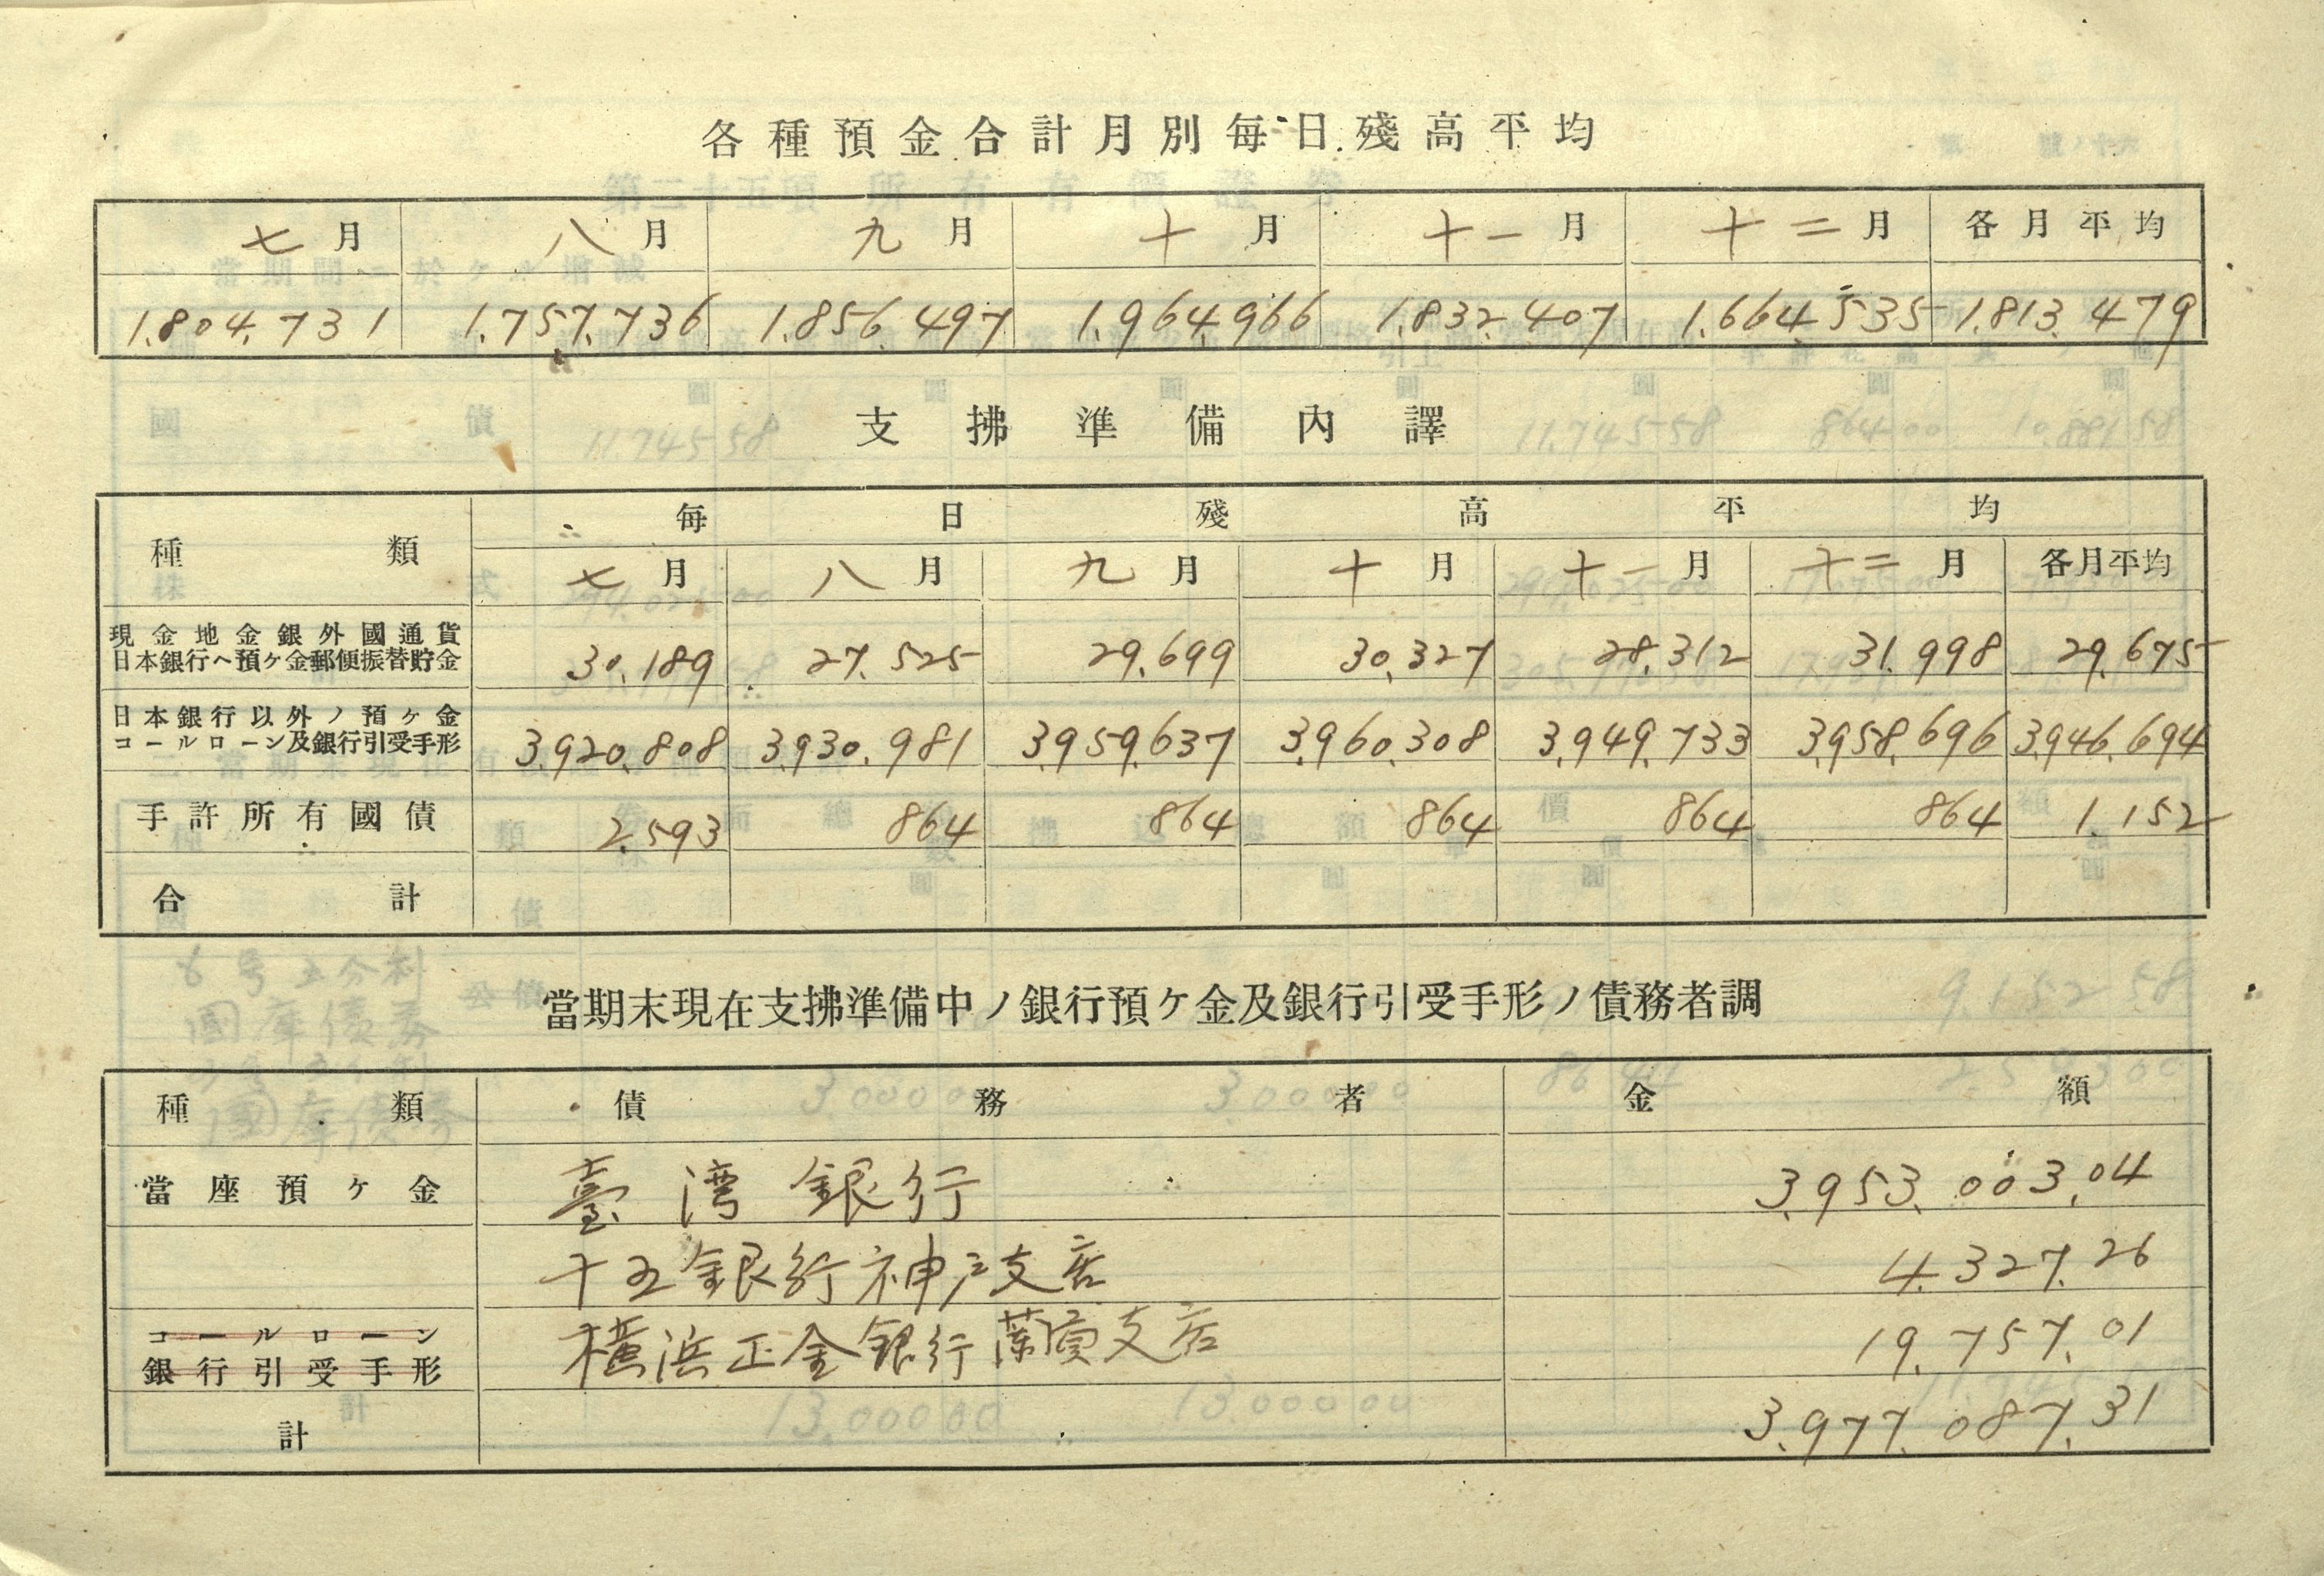 各種預金合計月別毎日殘高平均
七月 八月 九月 十月 十一月 十二月 各月平均
1.804.731 1.757.736 1.856.497 1.964.966 1.832.407 1.664.535 1.813.479
支拂準備內譯
種類 毎日殘高平均
七月 八月 九月 十月 十一月 十二月 各月平均
現金地金銀外國通貨
日本銀行ヘ預ケ金郵便振替貯金 30.189 27.525 29.699 30.327 28.312 31.998 29.675
日本銀行以外ノ預ケ金
コールローン及銀行引受手形 3.920.808 3.930.981 3.959.637 3.960.308 3.949.733 3.958.696 3.946.694
手許所有國債 2.593 864 864 864 864 864 1.152
合計
當期末現在支拂準備中ノ銀行預ケ金及銀行引受手形ノ債務者調
種類 債務者 金額
當座預ケ金 臺湾銀行 3.953.003.04
十五銀行神戸支店 4.327.26
コールローン
銀行引受手形 横浜正金銀行蘭貢支店 19.757.01
計 3.977.087.31